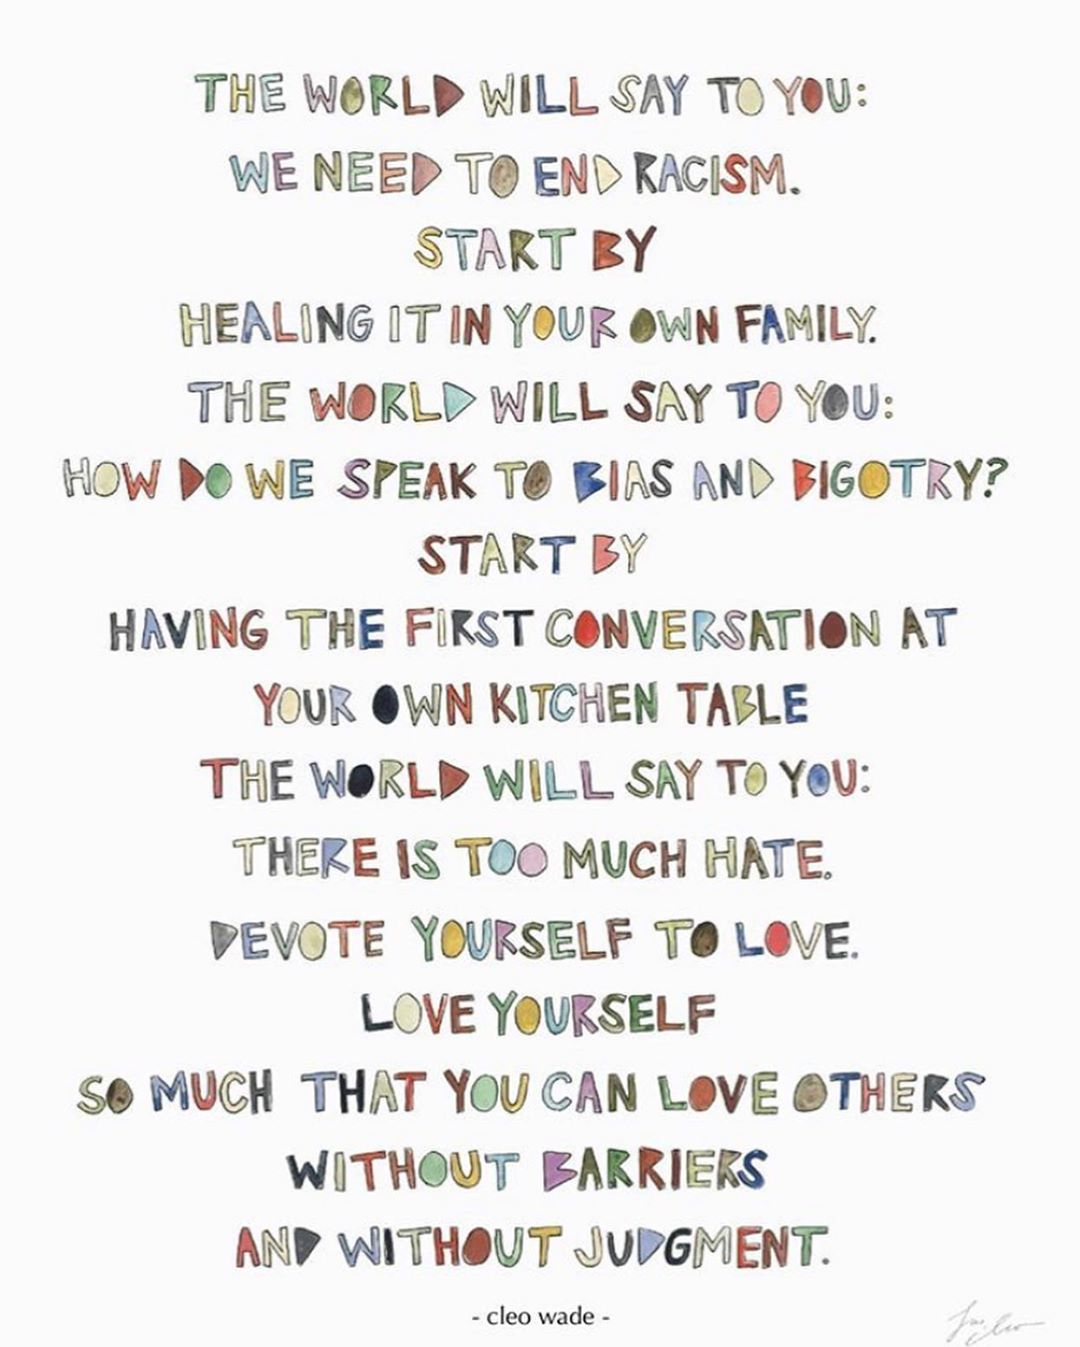 THE WORLD WILL SAY TO YOU:
WE NEED TO END RACISM.
START BY
HEALING IT IN YOUR OWN FAMILY.
THE WORLD WILL SAY TO YOU:
HOW DO WE SPEAK TO BIAS AND BIGOTRY?
START BY
HAVING THE FIRST CONVERSATION AT
YOUR OWN KITCHEN TABLE
THE WORLD WILL SAY TO YOU:
THERE IS TOO MUCH HATE.
DEVOTE YOURSELF TO LOVE.
LOVE YOURSELF
SO MUCH THAT YOU CAN LOVE OTHERS
WITHOUT BARRIERS
AND WITHOUT JUDGMENT.
- cleo wade -